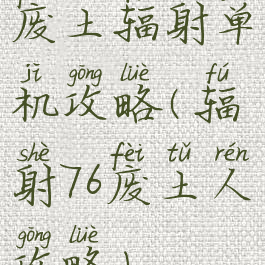 废土辐射单
jī gōng lüè fú
机攻略(辐
shè fèi tǔ rén
射76废土人
gōng lüè
攻略)